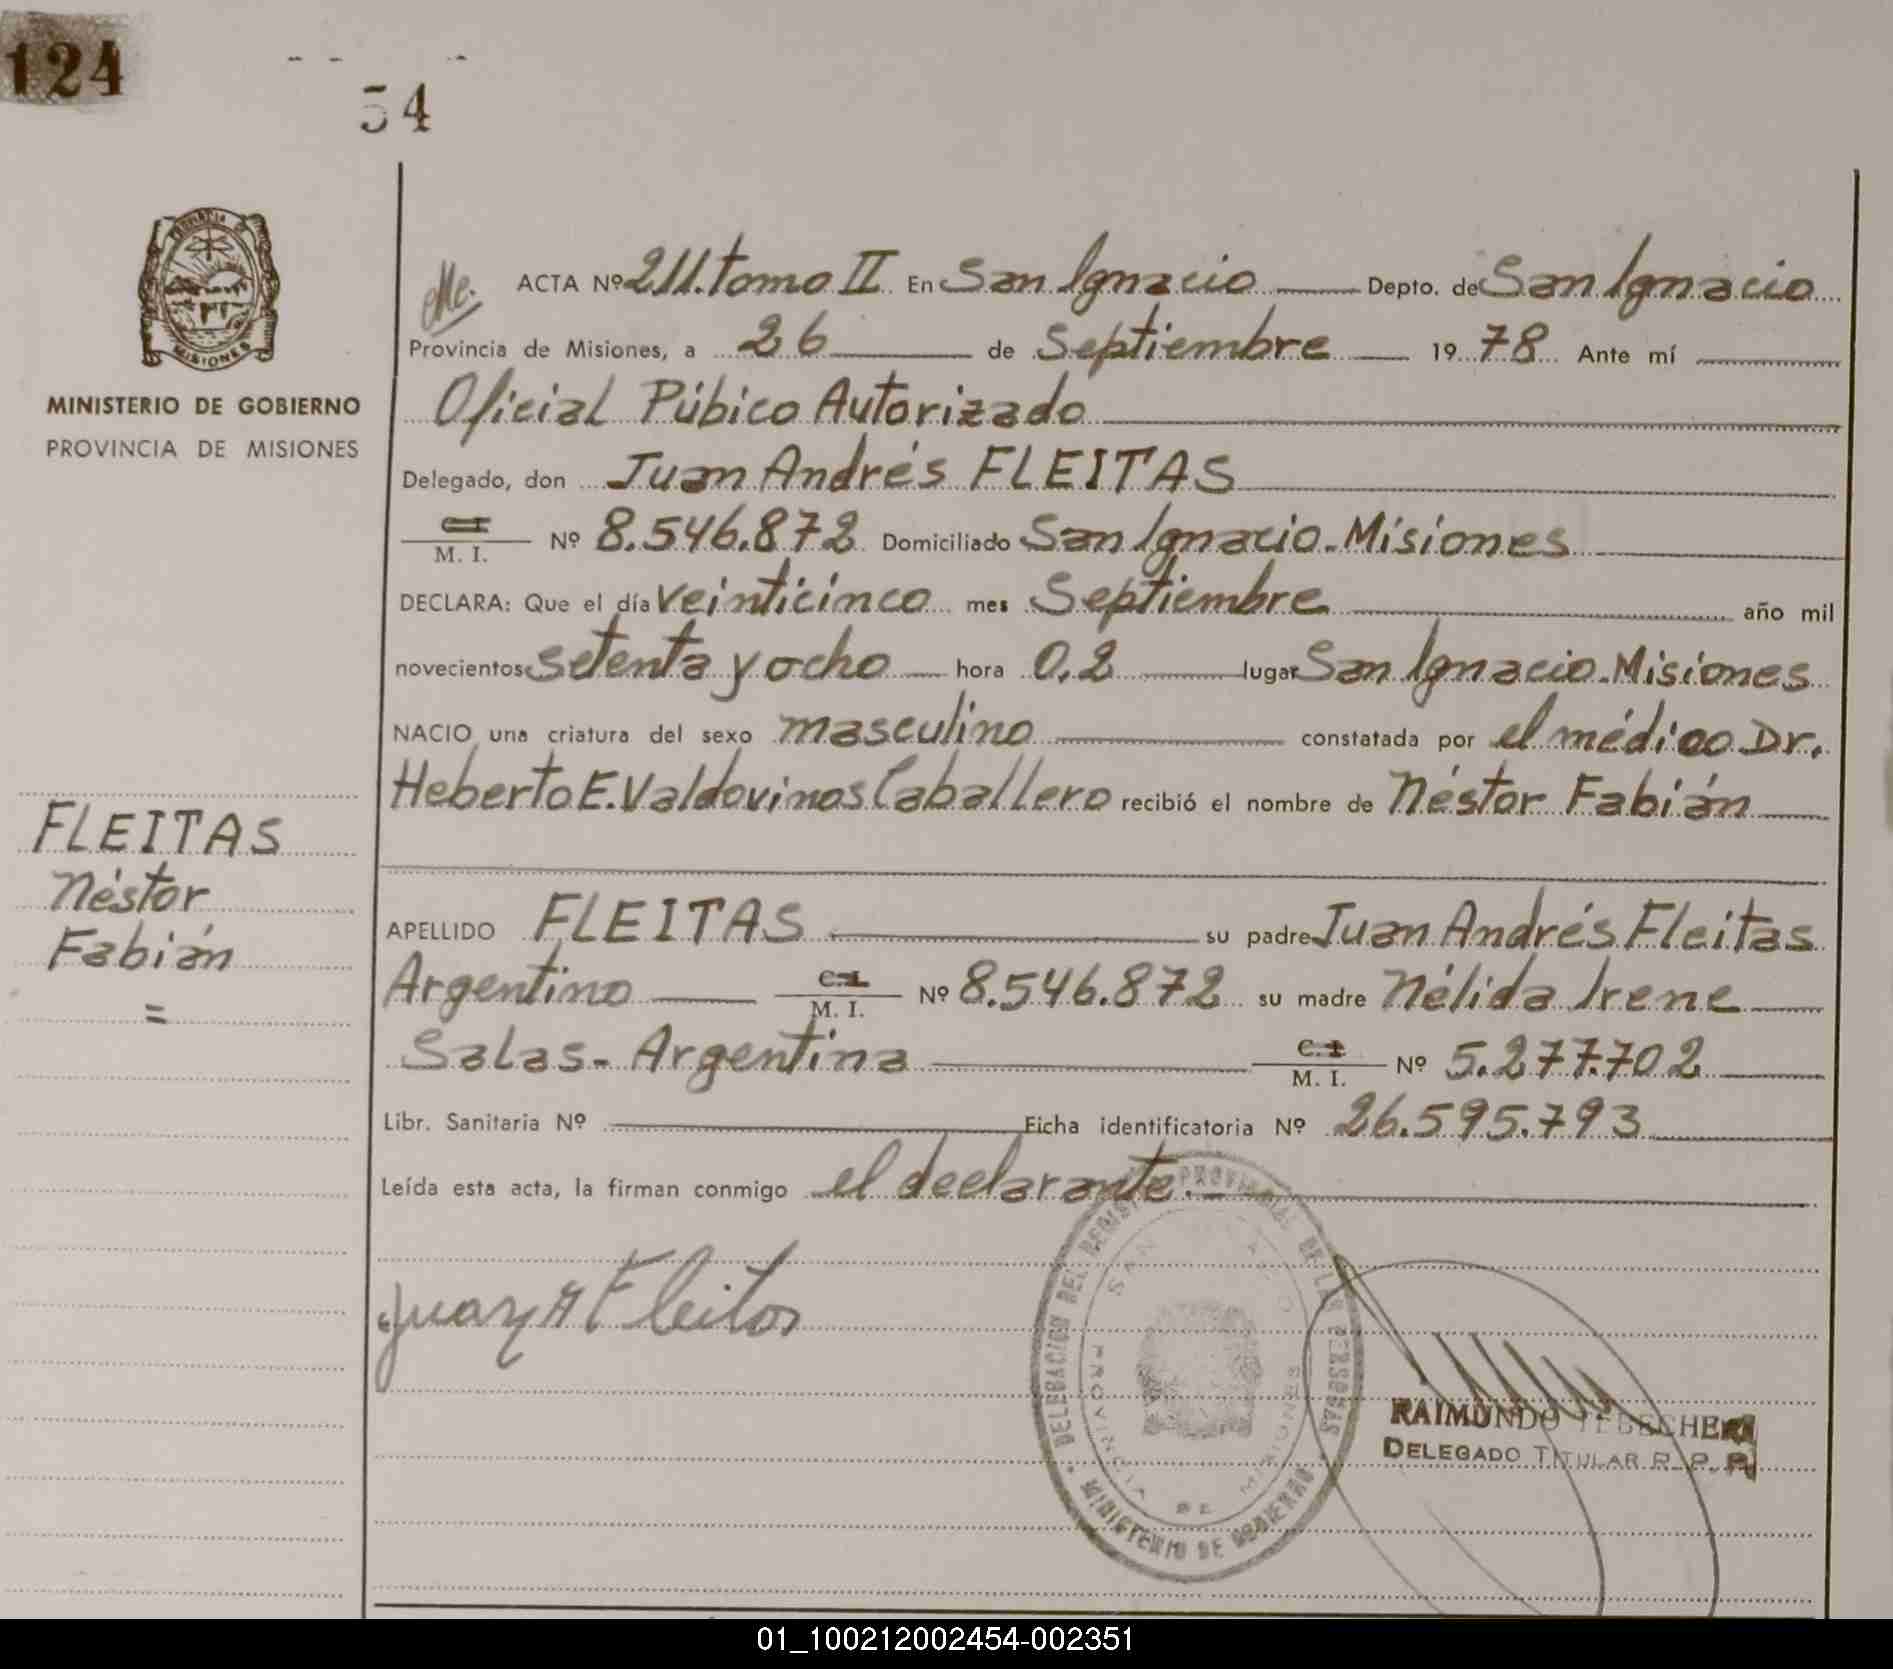 124
54
PROVINCIA DE
MISIONES
MINISTERIO DE GOBIERNO
PROVINCIA DE MISIONES
ACTA Nº 211. tomo II En San Ignacio Depto. de San Ignacio
Provincia de Misiones, a 26 de Septiembre 1978 Ante mí
Oficial Púbico Autorizado
Delegado, don Juan Andrés FLEITAS
C.I.
M. I. Nº 8.546.872 Domiciliado San Ignacio - Misiones
DECLARA: Que el día veinticinco mes Septiembre año mil
novecientos setenta y ocho hora 0,2 lugar San Ignacio - Misiones
NACIO una criatura del sexo masculino constatada por el médico Dr.
Heberto E. Valdovinos Caballero recibió el nombre de Néstor Fabián
FLEITAS
Néstor
Fabián
=
APELLIDO FLEITAS su padre Juan Andrés Fleitas
Argentino C.I. M. I. Nº 8.546.872 su madre Nélida Irene
Salas - Argentina C.I. M. I. Nº 5.277.702
Libr. Sanitaria Nº Ficha identificatoria Nº 26.595.793
Leída esta acta, la firman conmigo el declarante.-
Juan A Fleitas
DELEGACION DEL REGISTRO PROVINCIAL DE LAS PERSONAS
SAN IGNACIO
PROVINCIA DE MISIONES
MINISTERIO DE GOBIERNO
RAIMUNDO
DELEGADO TITULAR R. P. P.
01_100212002454-002351